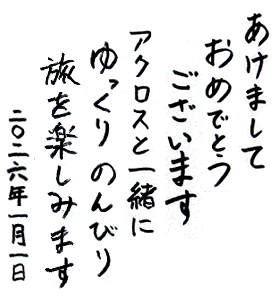 あけまして
おめでとう
ございます
アクロスと一緒に
ゆっくり のんびり
旅を楽しみます
二〇二六年一月一日